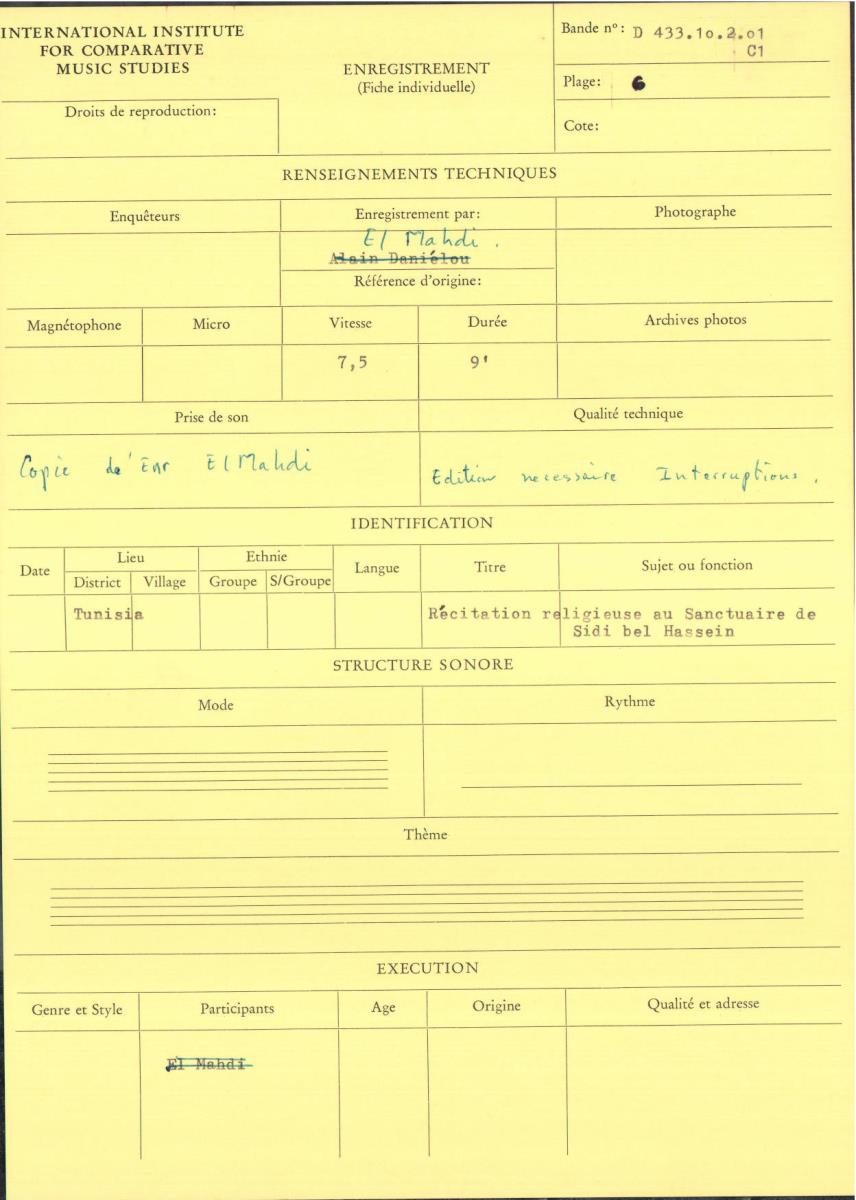 INTERNATIONAL INSTITUTE
FOR COMPARATIVE
MUSIC STUDIES
Droits de reproduction:
ENREGISTREMENT
(Fiche individuelle)
Bande nº: D 433.10.2.01
C1
Plage: 6
Cote:
RENSEIGNEMENTS TECHNIQUES
Enquêteurs
Enregistrement par:
Photographe
El Mahdi.
Alain Daniélou
Référence d'origine:
Magnétophone
Micro
Vitesse
Durée
Archives photos
7,5
9'
Prise de son
Qualité technique
Copie de' Enr El Mahdi
Edition necessaire Interruptions.
IDENTIFICATION
Date
Lieu
Ethnie
Langue
Titre
Sujet ou fonction
District
Village
Groupe
S/Groupe
Tunisia
Récitation religieuse au Sanctuaire de
Sidi bel Hassein
STRUCTURE SONORE
Mode
Rythme
Thème
EXECUTION
Genre et Style
Participants
Age
Origine
Qualité et adresse
El Mahdi